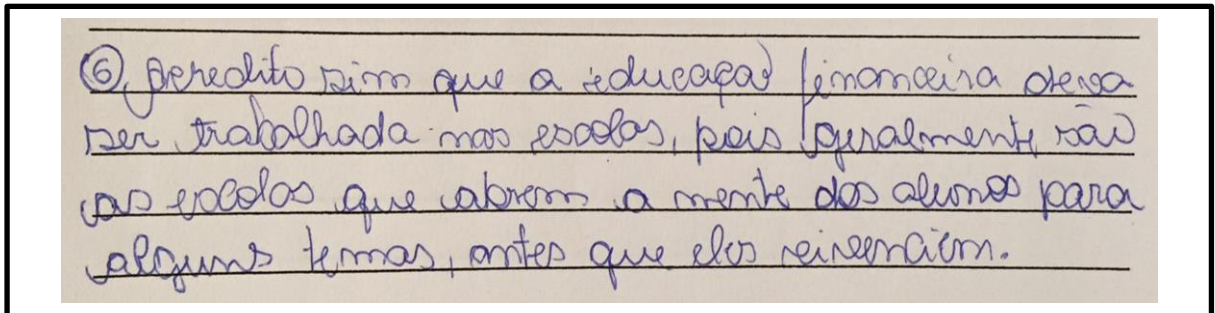 ⑥ Acredito sim que a educação financeira deva
ser trabalhada nas escolas, pois geralmente são
as escolas que abrem a mente dos alunos para
alguns temas, antes que eles